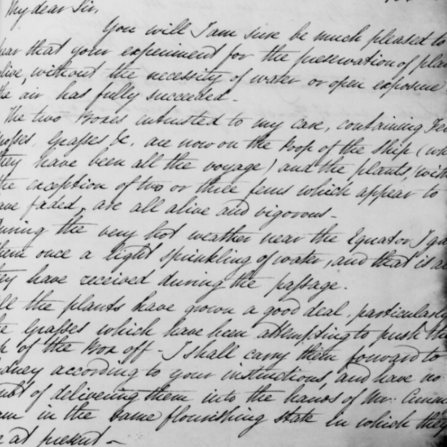 My dear Sir,
You will I am sure be much pleased to
hear that your experiment for the preservation of plants
alive, without the necessity of water or open exposure to
the air has fully succeeded.
The two Boxes intrusted to my care, containing Ferns
Mosses, Grasses &c, are now on the Poop of the Ship (where
they have been all the voyage) and the plants, with
the exception of two or three ferns which appear to
have faded, are all alive and vigorous.
During the very hot weather near the Equator I gave
them once a light sprinkling of water, and that is all
they have received during the passage.
All the plants have grown a good deal, particularly
the Grasses which have been attempting to push the
top of the Box off. I shall carry them forward to
Sydney according to your instructions, and have no
doubt of delivering them into the hands of Mr.
in the same flourishing state in which they
are at present.